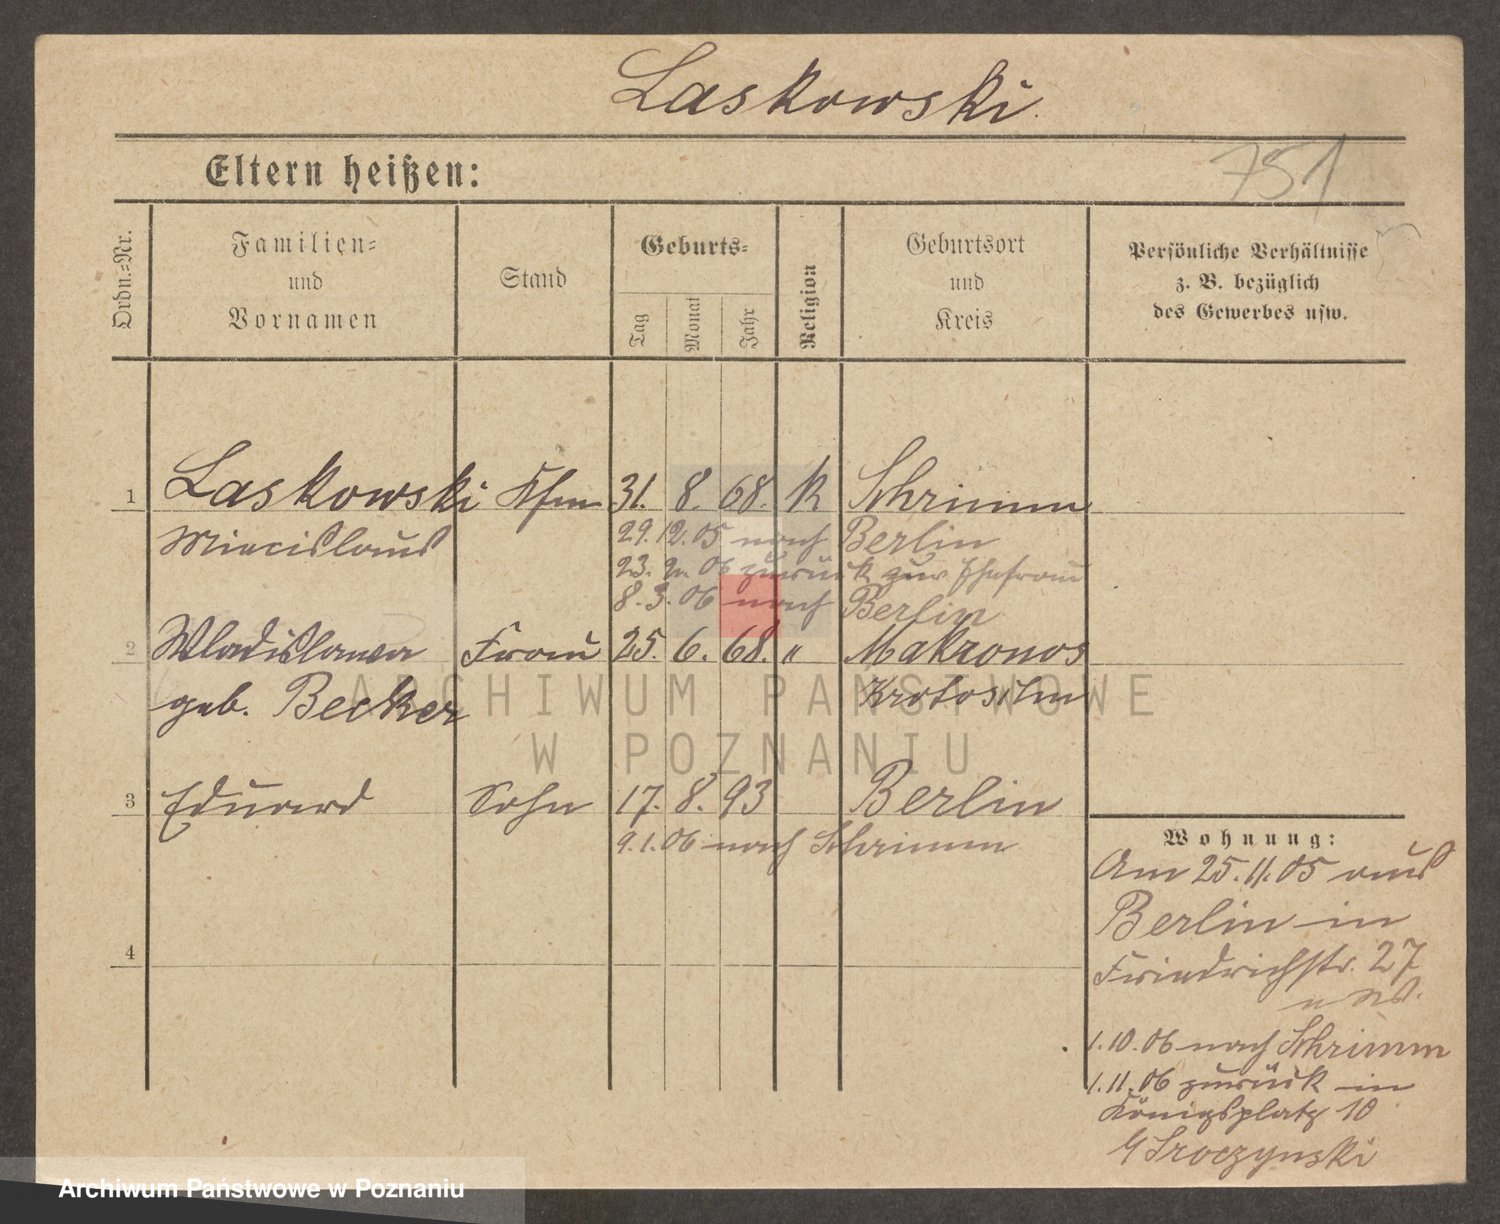 Laskowski.
Eltern heißen:
751
Ordn.-Nr.
Familien-
und
Vornamen
Stand
Geburts-
Tag
Monat
Jahr
Religion
Geburtsort
und
Kreis
Persönliche Verhältnisse
z. B. bezüglich
des Gewerbes usw.
1 Laskowski Kfm 31. 8. 68. K Schrimm
Miecislaus 29.12.05 nach Berlin
23. 2. 06 zurück zur Ehefrau
8. 3. 06 nach Berlin
2 Wladislawa Frau 25. 6. 68. " Makronos
geb. Becker Krotoschin
3 Eduard Sohn 17. 8. 93 Berlin
9.1.06 nach Schrimm
4
Wohnung:
Am 25.11.05 aus
Berlin in
Friedrichstr. 27
1.10.06 nach Schrimm
1.11.06 zurück in
Königsplatz 10
Sroczynski
ARCHIWUM PAŃSTWOWE
W POZNANIU
Archiwum Państwowe w Poznaniu